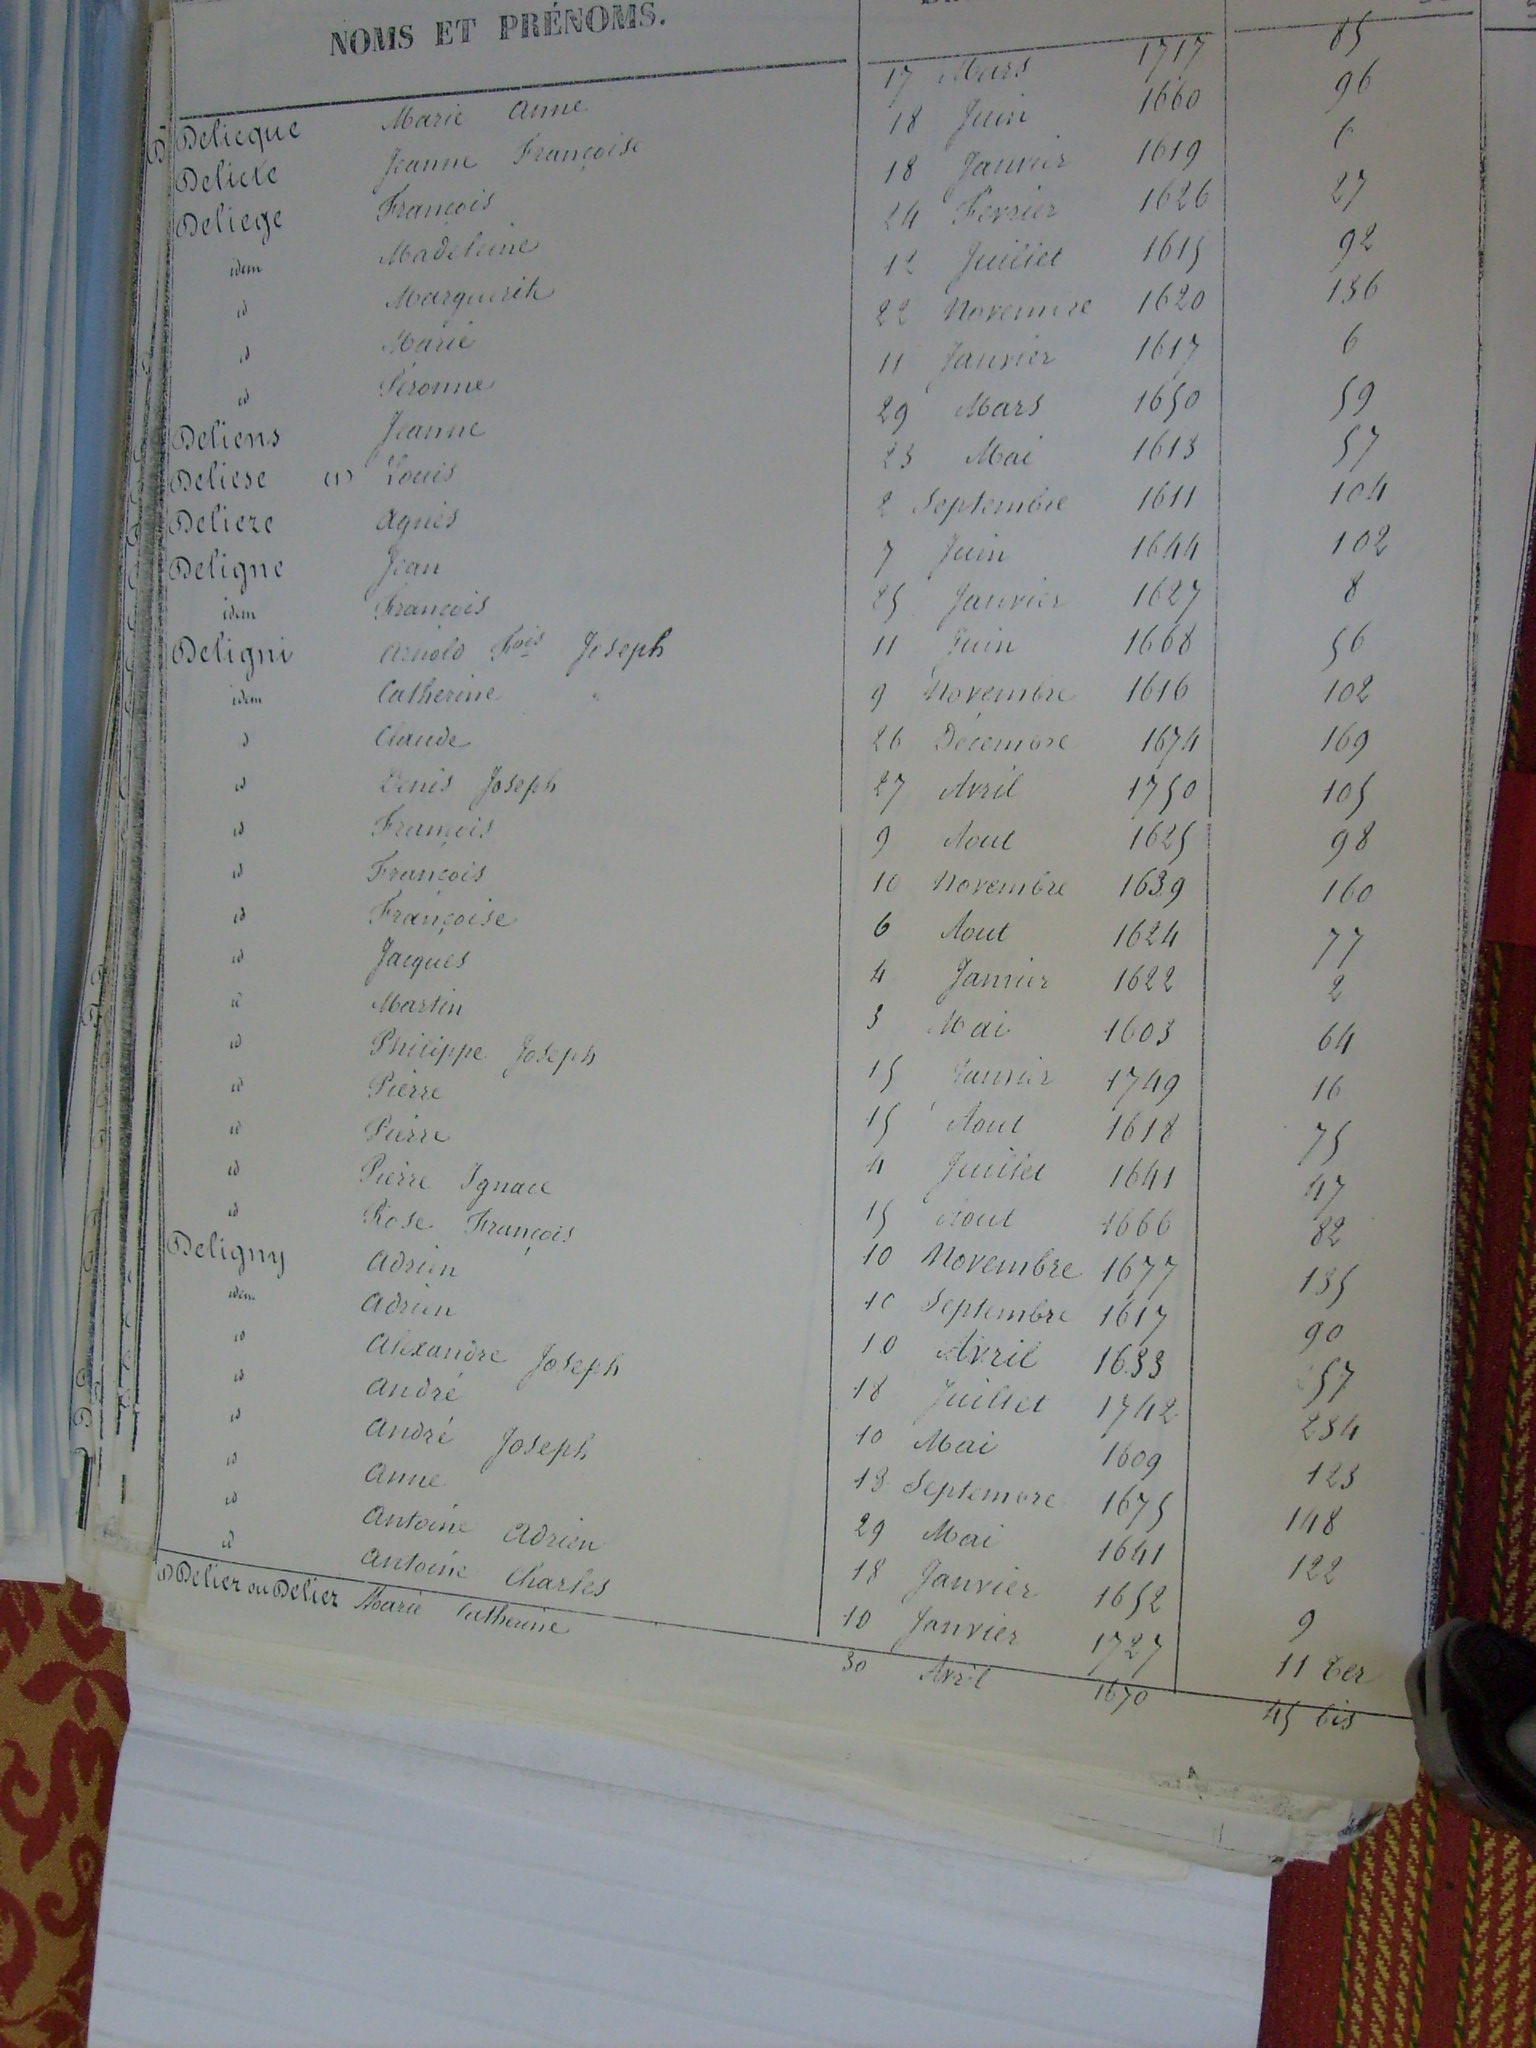 NOMS ET PRÉNOMS.
D Delicque Marie Anne 17 Mars 1717 85
Delicte Jeanne Françoise 18 Juin 1660 96
Deliege François 18 Janvier 1619 6
idem Madeleine 24 Fevrier 1626 27
id Marguerite 12 Juillet 1615 92
id Marie 22 Novembre 1620 136
id Péronne 11 Janvier 1617 6
Deliens Jeanne 29 Mars 1650 59
Deliese (1) Louis 23 Mai 1613 57
Delieze Agnès 2 Septembre 1611 104
Deligne Jean 7 Juin 1644 102
idem François 25 Janvier 1627 8
Deligni Arnold Fois Joseph 11 Juin 1668 56
idem Catherine 9 Novembre 1616 102
id Claude 26 Décembre 1674 169
id Denis Joseph 27 Avril 1750 105
id François 9 Aout 1625 98
id François 10 Novembre 1639 160
id Françoise 6 Aout 1624 77
id Jacques 4 Janvier 1622 2
id Martin 3 Mai 1603 64
id Philippe Joseph 15 Janvier 1749 16
id Pierre 15 Aout 1618 75
id Pierre 4 Juillet 1641 47
id Pierre Ignace 15 Aout 1666 82
id Rose François 10 Novembre 1677 135
Deligny Adrien 10 Septembre 1617 90
idem Adrien 10 Avril 1633 57
id Alexandre Joseph 18 Juillet 1742 234
id André 10 Mai 1609 123
id André Joseph 13 Septembre 1675 148
id Anne 29 Mai 1641 122
id Antoine Adrien 18 Janvier 1652 9
id Antoine Charles 10 Janvier 1727 11 ter
D Delier ou Delier Marie Catherine 30 Avril 1670 45 bis